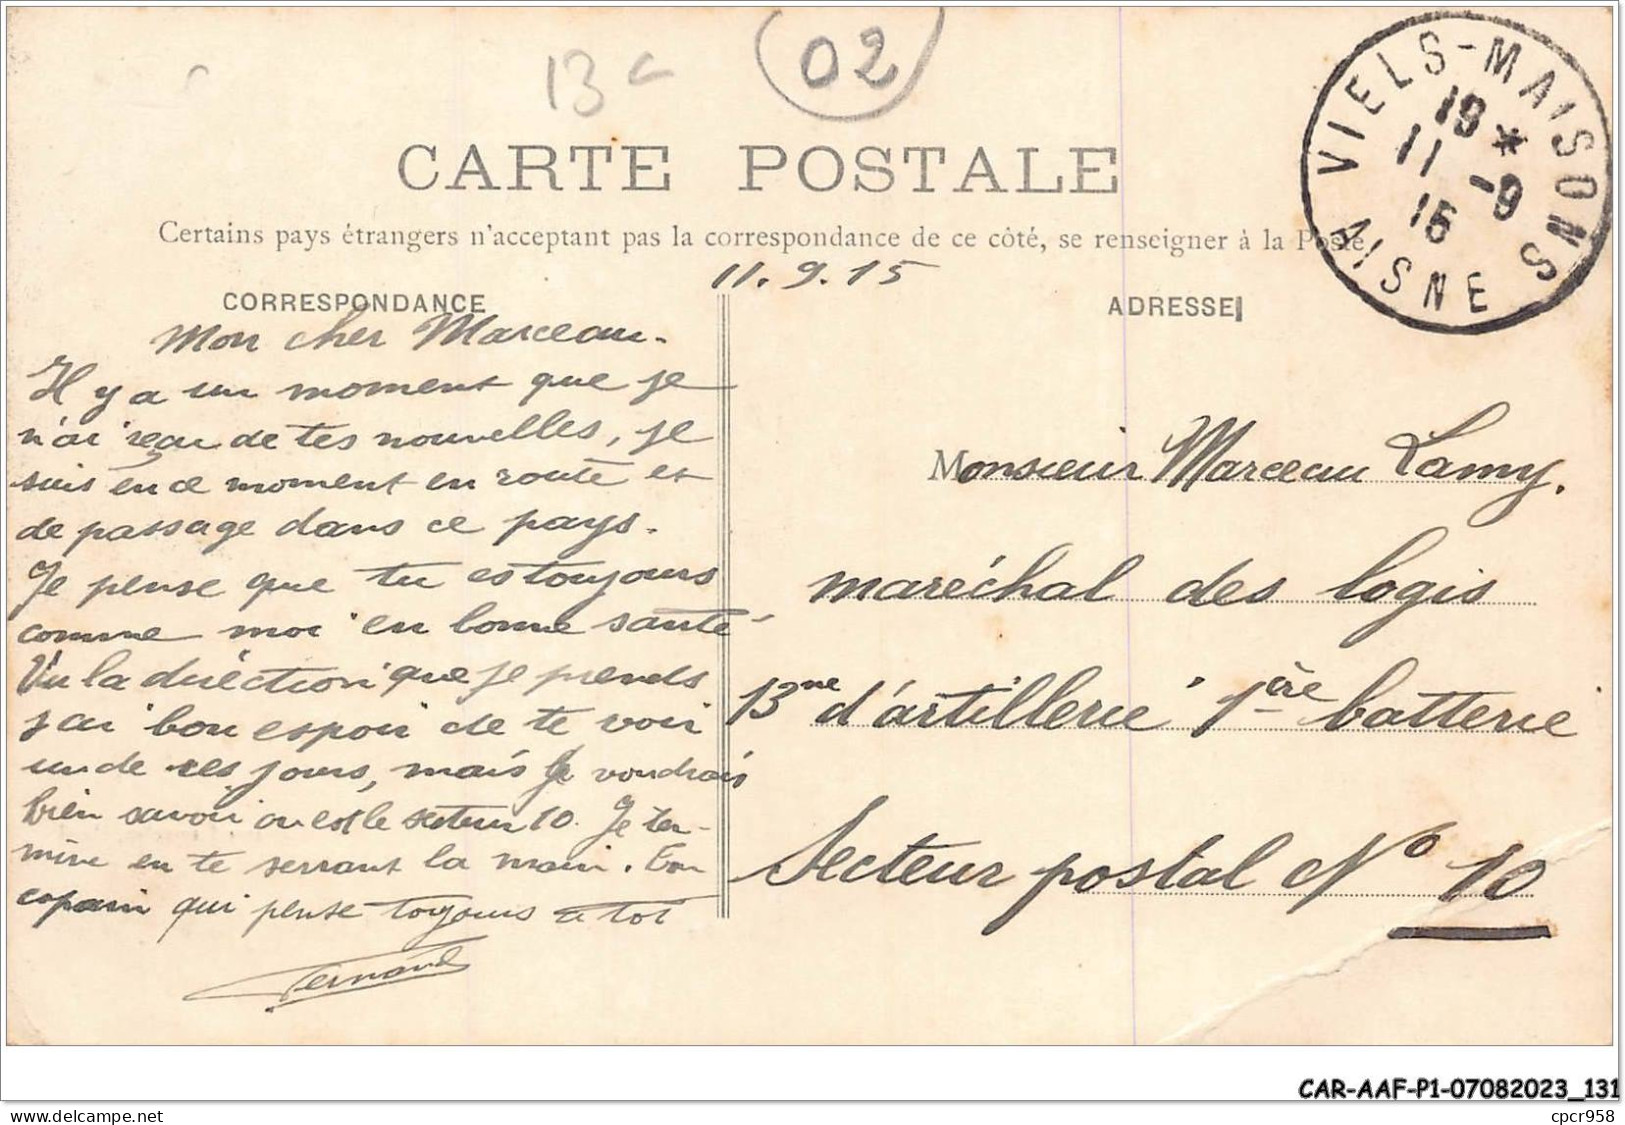 13 c
02
CARTE POSTALE
Certains pays étrangers n'acceptant pas la correspondance de ce côté, se renseigner à la Poste
VIELS-MAISONS
19 *
11 -9
15
AISNE
11.9.15
CORRESPONDANCE
Mon cher Marceau.
Il y a un moment que je
n'ai reçu de tes nouvelles, je
suis en ce moment en route et
de passage dans ce pays.
Je pense que tu es toujours
comme moi en bonne santé
Vu la diréction que je prends
j'ai bon espoir de te voir
un de ces jours, mais je voudrais
bien savoir ou est le secteur 10. Je ter-
mine en te serrant la main. Ton
copain qui pense toujours à toi
Fernand
ADRESSE
Monsieur Marceau Lamy.
maréchal des logis
13me d'artillerie 1ère batterie
Secteur postal No 10
CAR-AAF-P1-07082023_131
delcampe.net
cpcr958